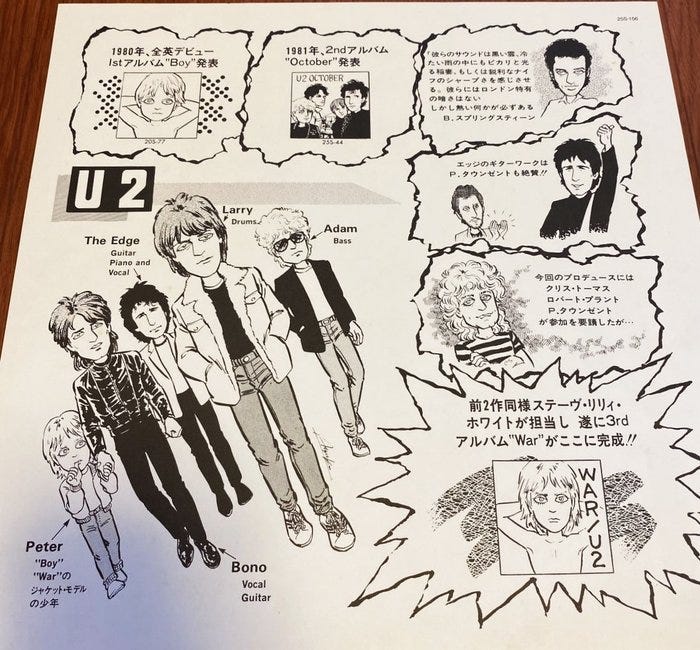 25S-156
1980年、全英デビュー
1stアルバム"Boy"発表
20S-77
1981年、2ndアルバム
"October"発表
U2 OCTOBER
25S-44
「彼らのサウンドは黒い雲、冷
たい雨の中にもピカリと光
る稲妻、もしくは鋭利なナイ
フのシャープさを感じさせ
る。彼らにはロンドン特有
の暗さはない
しかし熱い何かが必ずある
B.スプリングスティーン
エッジのギターワークは
P.タウンゼントも絶賛!!
今回のプロデュースには
クリス・トーマス
ロバート・プラント
P.タウンゼント
が参加を要請したが…
前2作同様スティーヴ・リリィ・
ホワイトが担当し 遂に3rd
アルバム"War"がここに完成!!
WAR/U2
U2
Larry
Drums
Adam
Bass
The Edge
Guitar
Piano and
Vocal
Peter
"Boy"
"War"の
ジャケット・モデル
の少年
Bono
Vocal
Guitar